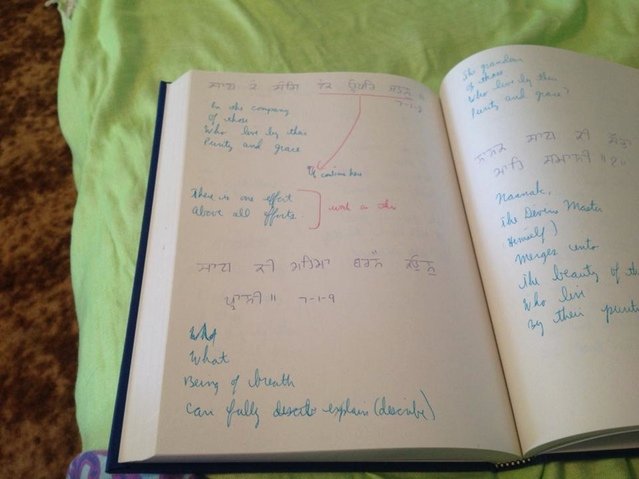 ਸਾਧ ਕੈ ਸੰਗਿ ਏਕ ਊਪਰਿ ਜਤਨੁ ॥
7-1-8
In the company
Of those
Who live by their
Purity and grace
continue here
There is one effort
Above all efforts.
work on this
ਸਾਧ ਕੀ ਮਹਿਮਾ ਬਰਨੈ ਕਉਨੁ
ਪ੍ਰਾਨੀ ॥ 7-1-9
What
Being of breath
can fully explain (describe)
The grandeur
Of those
Who live by their
Purity and grace?
ਨਾਨਕ ਸਾਧ ਕੀ ਸੋਭਾ
ਮਾਹਿ ਸਮਾਨੀ ॥੧॥
Naanak,
The Divine Master
Himself)
Merges into
The beauty of
Who live
By their